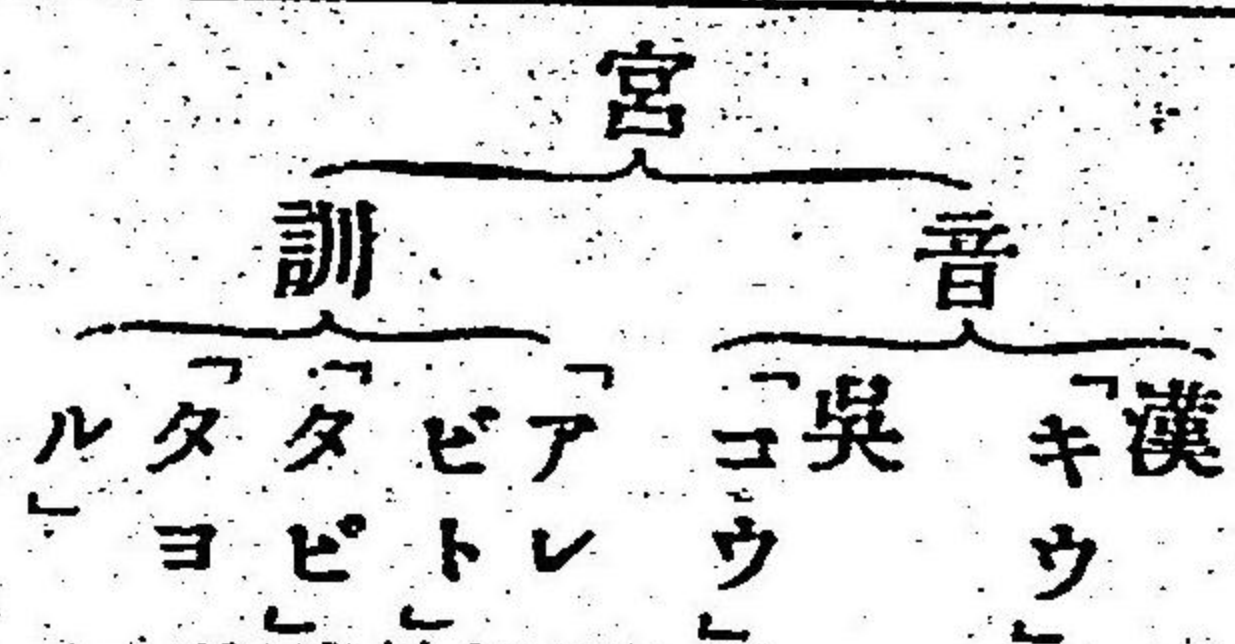 宮
音
漢
「キウ」
吳
「コウ」
訓
「アレ
ビト」
「タピ」
「タヨ
ル」